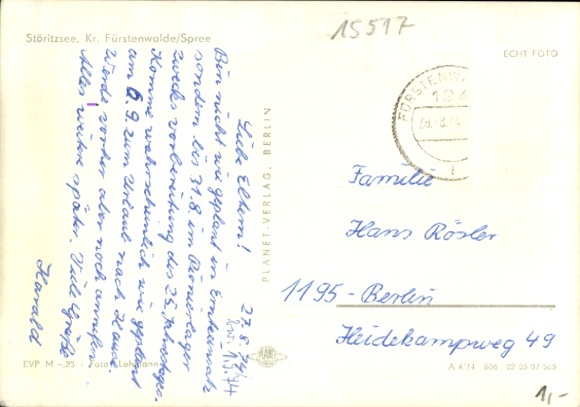 Störitzsee, Kr. Fürstenwalde/Spree
15517
ECHT FOTO
FÜRSTENWA
124
26.-8.74
1
Liebe Eltern!
27.8.74
1.9.74
Bin nicht wie geplant im Ernteeinsatz
sondern bis 31.8. im Pionierlager
zwecks Vorbereitung des 25. Jahrestages.
Komme wahrscheinlich wie geplant
am 6.9. zum Urlaub nach Hause.
Werde vorher aber noch anrufen.
Alles weitere später. Viele Grüße
Harald
PLANET-VERLAG, BERLIN
Familie
Hans Rösler
1195-Berlin
Heidekampweg 49
EVP M -,25 · Foto: Lehmann
PLANET
A 4/74 606 02 05 07 563
1,-